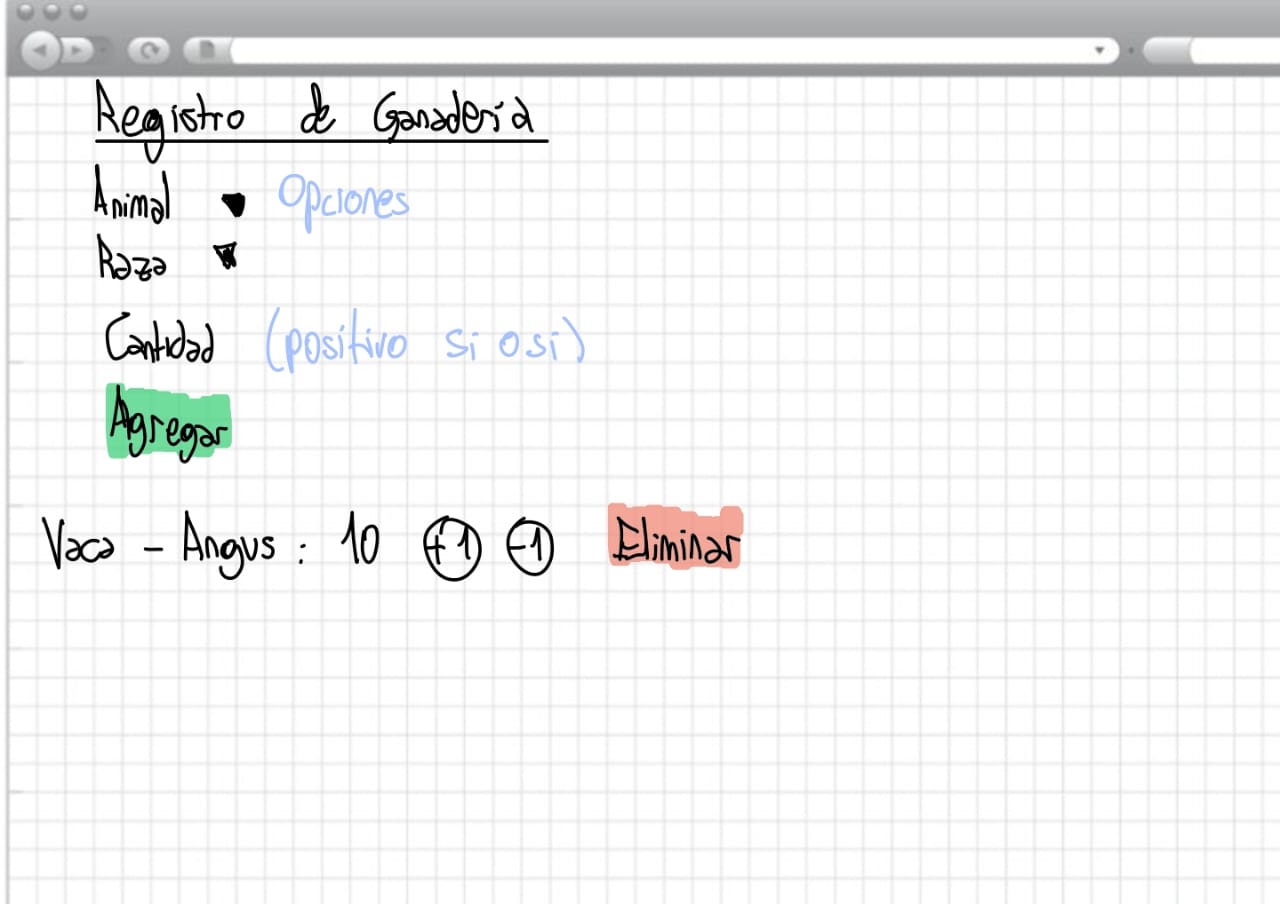 Registro de Ganadería
Animal Opciones
Raza
Cantidad (positivo si o si)
Agregar
Vaca - Angus : 10 +1 -1 Eliminar